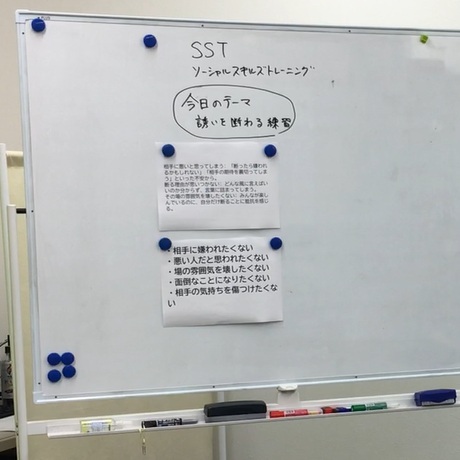 SST
ソーシャルスキルズトレーニング
今日のテーマ
誘いを断わる練習
相手に悪いと思ってしまう:「断ったら嫌われ
るかもしれない」「相手の期待を裏切ってしま
う」といった不安から。
断る理由が思いつかない: どんな風に言えばい
いのか分からず、言葉に詰まってしまう。
その場の雰囲気を壊したくない: みんなが楽し
んでいるのに、自分だけ断ることに抵抗を感じ
る。
・相手に嫌われたくない
・悪い人だと思われたくない
・場の雰囲気を壊したくない
・面倒なことになりたくない
・相手の気持ちを傷つけたくな
い